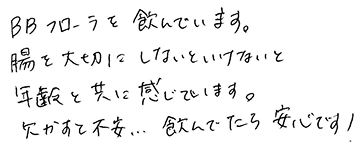 BBフローラを飲んでいます。
腸を大切にしないといけないと
年齢と共に感じています。
欠かすと不安… 飲んでたら安心です!